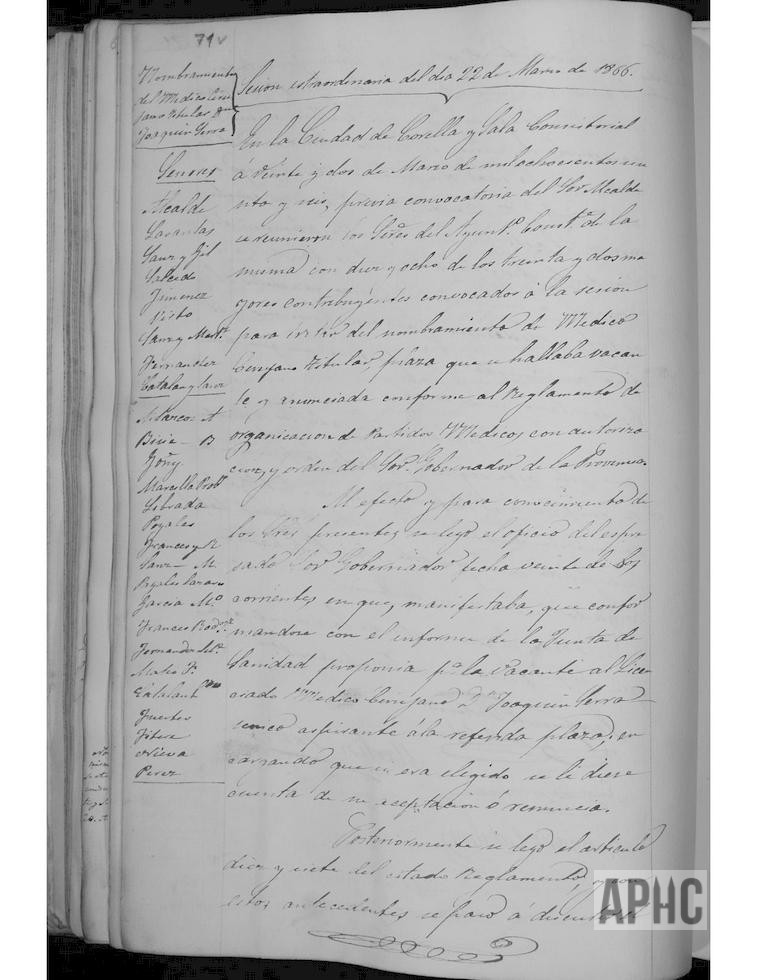 71v
Nombramiento
del Medico Ciru
jano titular Dn
Joaquin Serra
Sesion estraordinaria del dia 22 de Marzo de 1866.
Señores
Alcalde
Sanz y Gil
Salcedo
Jimenez
Sanz y Mart.
Fernandez
Catalan y Sanz
Marco A
Goñy
Librada
Poyales
Frances y R
Sanz M.
Garcia Mo
Mateo F.
Catalan
Fuertes
Fitera
Nieva
Perez
En la Ciudad de Corella y Sala Consistorial
á veinte y dos de Marzo de mil ochocientos sese
nta y seis, previa convocatoria del Sor. Alcalde
se reunieron los Sres. del Ayunto. Constl. de la
misma con diez y ocho de los treinta y dos ma
yores contribuyentes convocados á la sesion
para tratar del nombramiento de Medico
Cirujano titular, plaza que se hallaba vacan
te y anunciada conforme al Reglamento de
organizacion de Partidos Medicos con autoriza
cion, y orden del Sor. Gobernador de la Provincia.
Al efecto y para conocimiento de
los Sres presentes, se leyó el oficio del espre
sado Sor. Gobernador fecha veinte de los
corrientes en que, manifestaba, que confor
mandose con el informe de la Junta de
Sanidad proponia pa. la vacante al Licen
ciado Medico Cirujano Dn. Joaquin Serra
unico aspirante á la referida plaza, en
cargando que si era elegido se le diese
cuenta de su aceptacion ó renuncia.
Posteriormente se leyó el articulo
diez y siete del citado Reglamento, y con
estos antecedentes se pasó á discutir
APHC